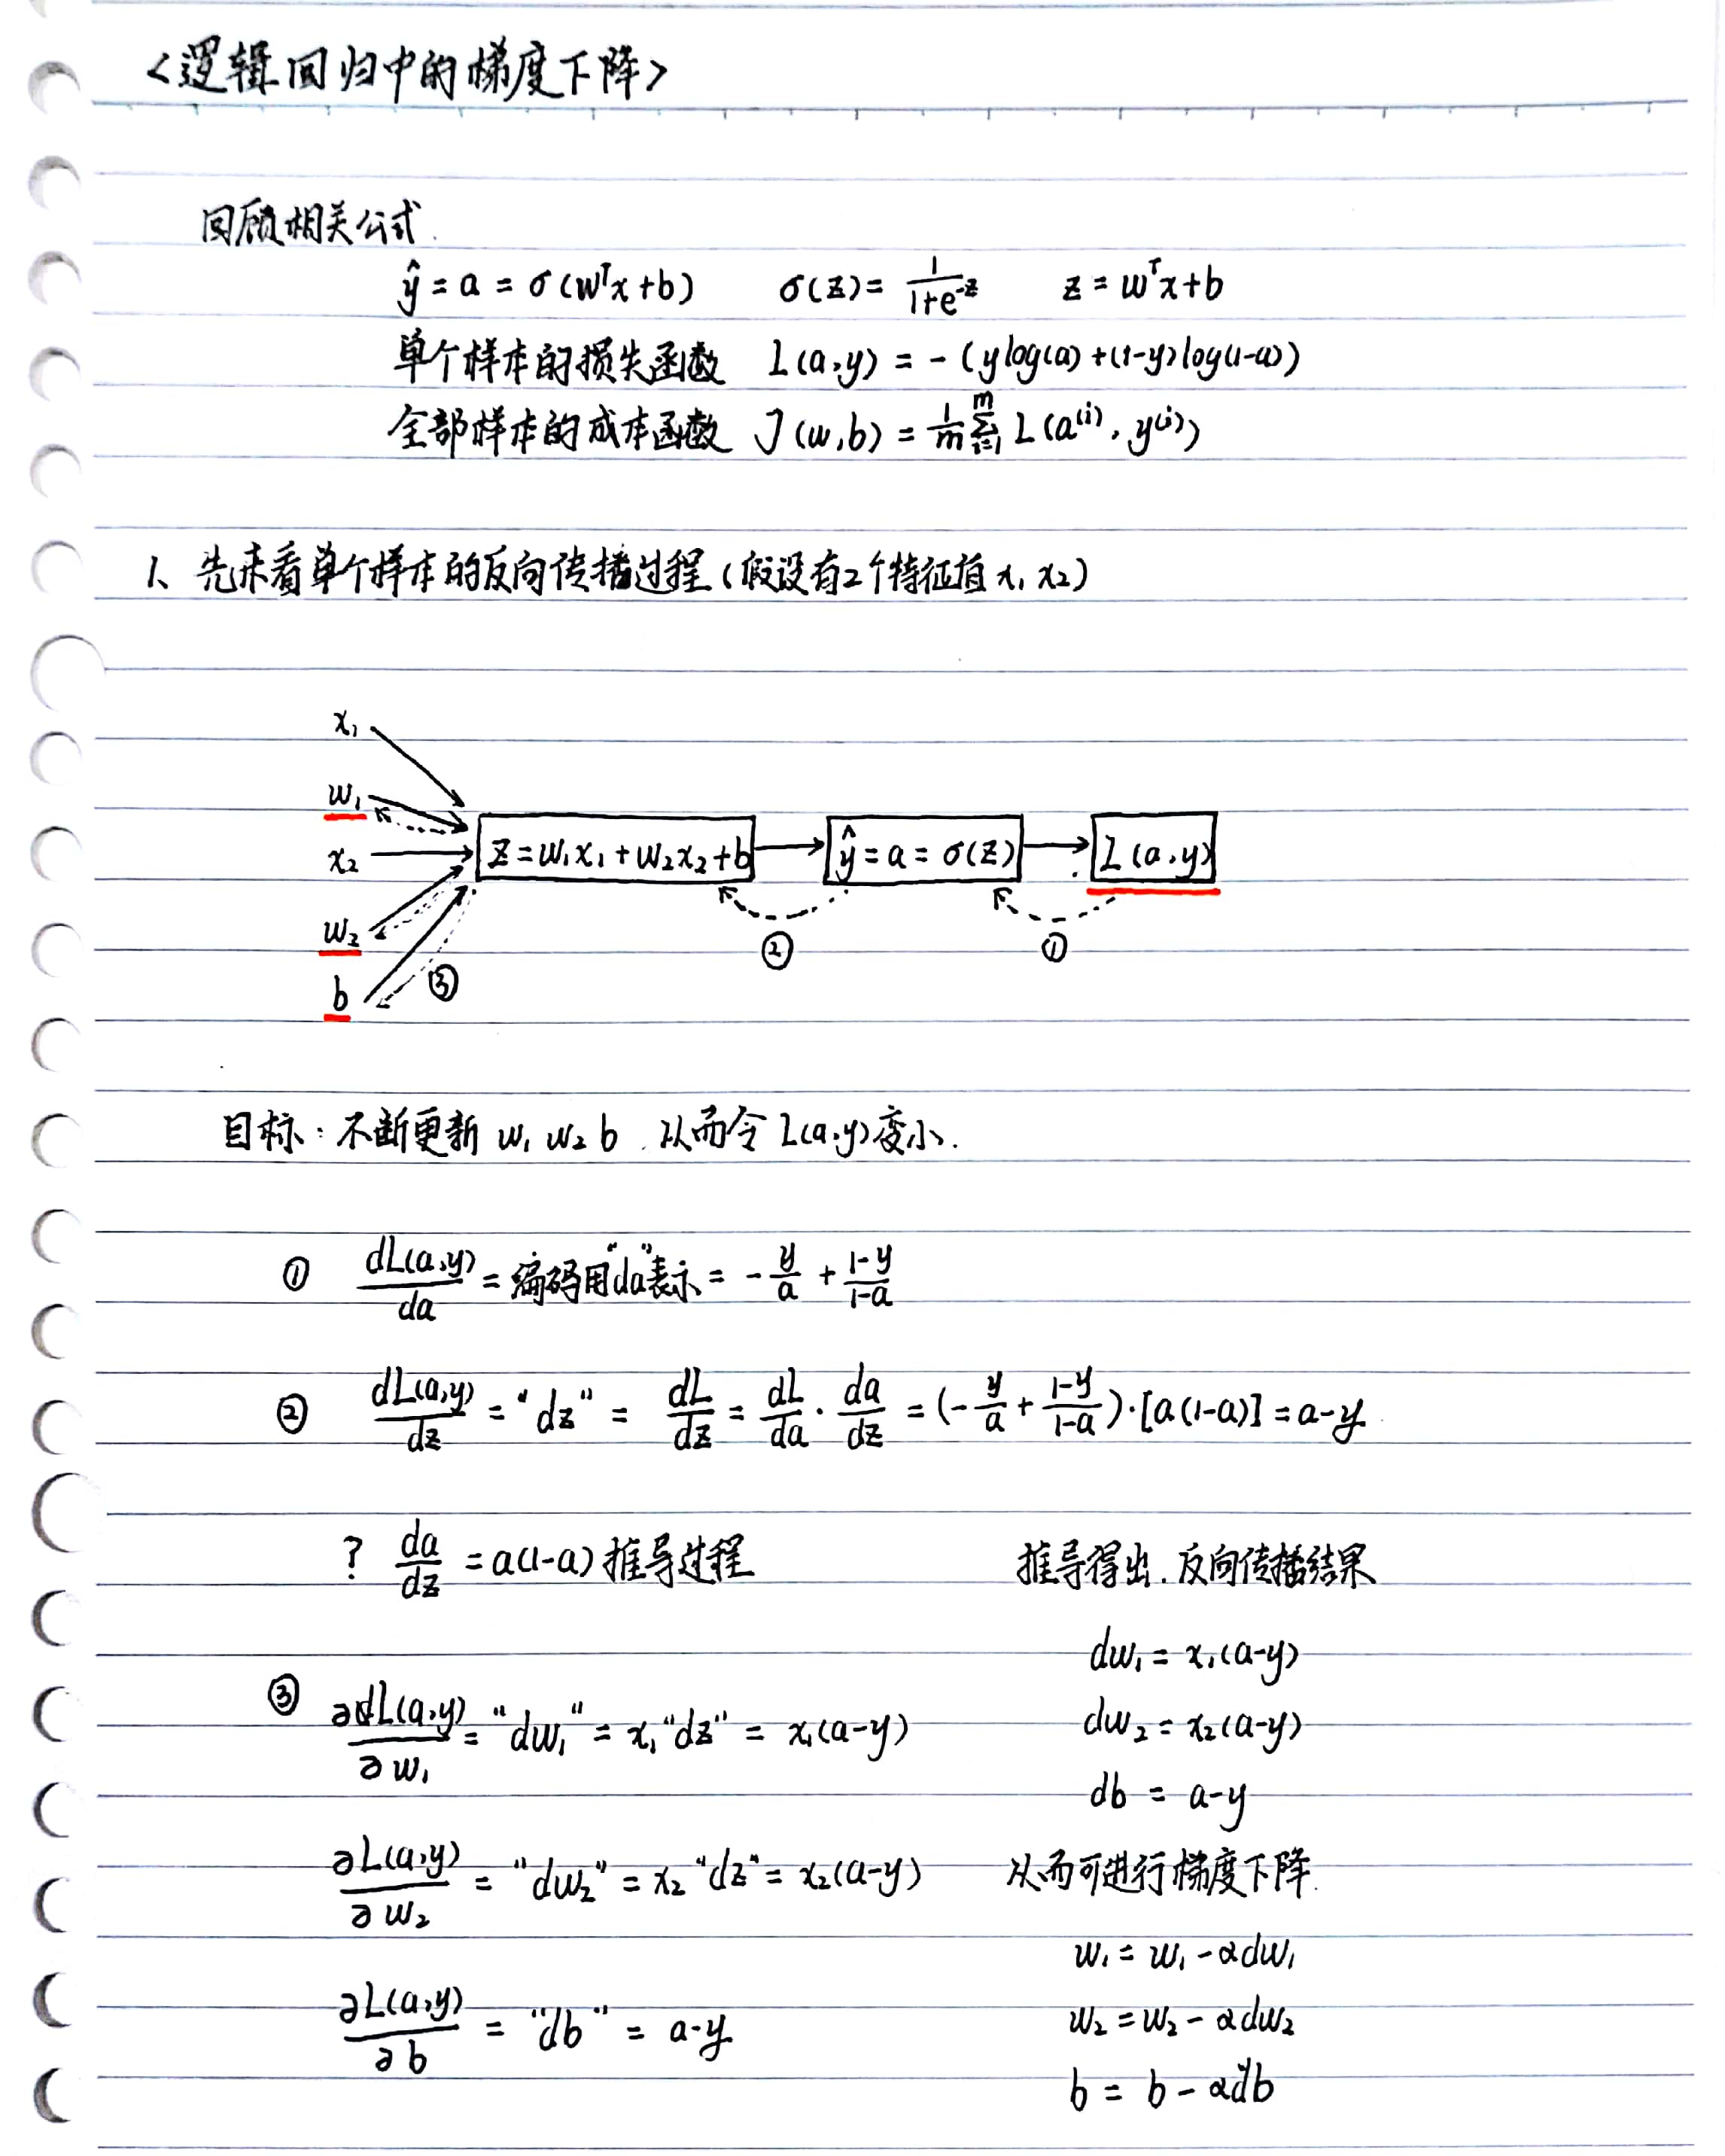 <逻辑回归中的梯度下降>
回顾相关公式.
ŷ = a = σ(wᵀx+b)  σ(z) = 1/(1+e^-z)  z = wᵀx+b
单个样本的损失函数 L(a,y) = -(ylog(a)+(1-y)log(1-a))
全部样本的成本函数 J(w,b) = 1/m Σ_{i=1}^{m} L(a⁽ⁱ⁾, y⁽ⁱ⁾)
1、先来看单个样本的反向传播过程(假设有2个特征值 x₁ x₂)
x₁
w₁
x₂
w₂
b
z=w₁x₁+w₂x₂+b
ŷ=a=σ(z)
L(a,y)
③ ② ①
目标: 不断更新 w₁ w₂ b . 从而令 L(a,y)变小.
① dL(a,y)/da = 编码用"da"表示 = -y/a + (1-y)/(1-a)
② dL(a,y)/dz = "dz" = dL/dz = dL/da · da/dz = (-y/a + (1-y)/(1-a))·[a(1-a)] = a-y
? da/dz = a(1-a) 推导过程
③ ∂L(a,y)/∂w₁ = "dw₁" = x₁"dz" = x₁(a-y)
∂L(a,y)/∂w₂ = "dw₂" = x₂"dz" = x₂(a-y)
∂L(a,y)/∂b = "db" = a-y
推导得出.反向传播结果
dw₁ = x₁(a-y)
dw₂ = x₂(a-y)
db = a-y
从而可进行梯度下降.
w₁ = w₁ - αdw₁
w₂ = w₂ - αdw₂
b = b - αdb